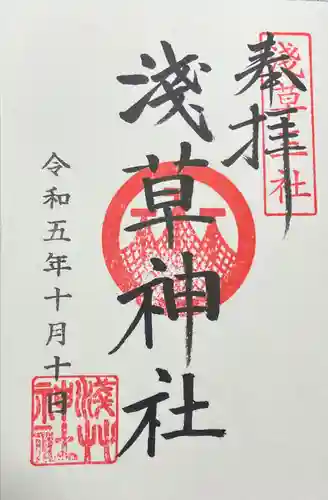 奉拝
淺草三社
淺草神社
令和五年十月十日
淺草神社